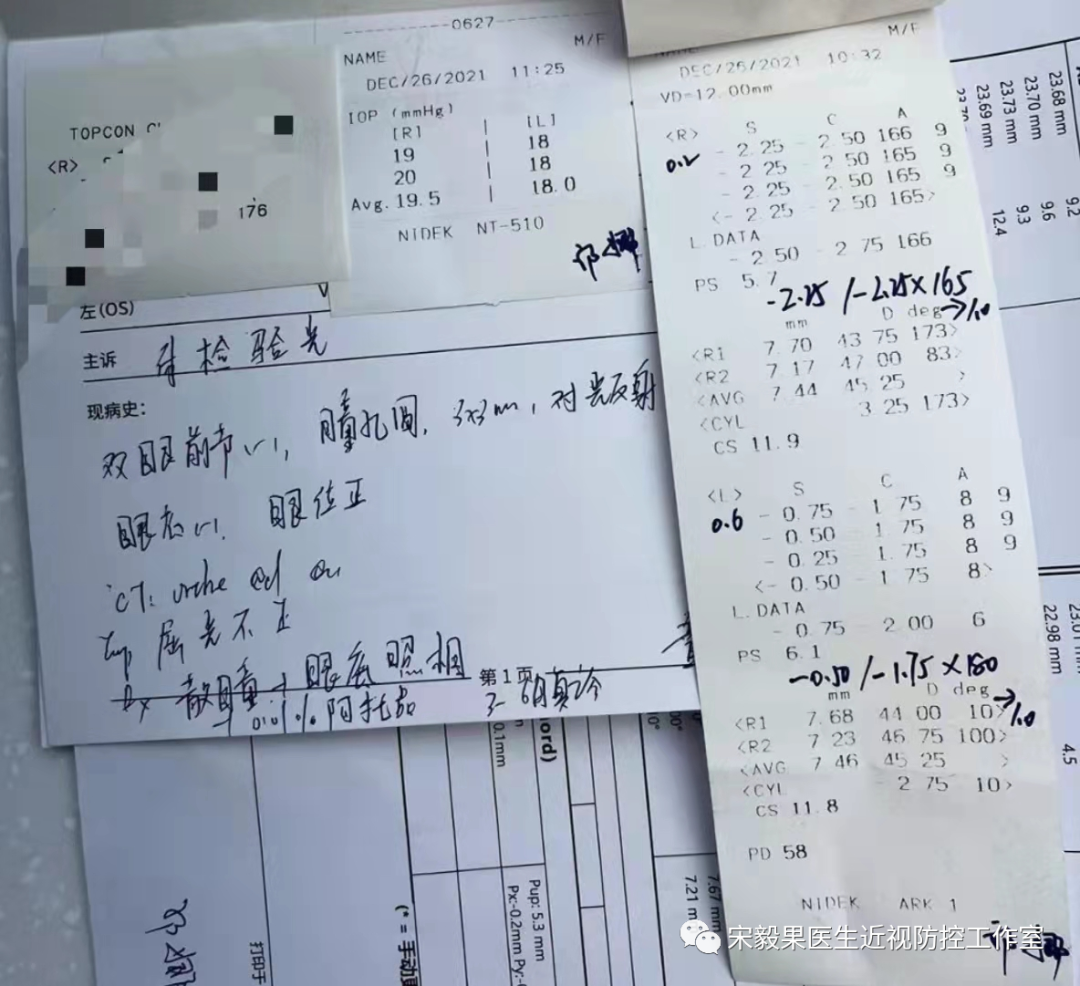 0627
NAME
M/F
DEC/26/2021 11:25
IOP (mmHg)
[R] | [L]
19 | 18
20 | 18
Avg. 19.5 | 18.0
NIDEK NT-510
TOPCON
<R>
176
左(OS)
主诉
验光
现病史:
双眼前节(-), 瞳孔圆, 3x3mm, 对光反射
眼底(-), 眼位正
屈光不正
散瞳+眼底照相
0.01%阿托品
第1页
M/F
DEC/26/2021 10:32
VD=12.00mm
<R> S C A
0.2
- 2.25 - 2.50 166 9
- 2.25 - 2.50 165 9
- 2.25 - 2.50 165 9
<- 2.25 - 2.50 165>
L.DATA
- 2.50 - 2.75 166
PS 5.7
-2.25 /-2.25×165
→1.0
mm D deg
<R1 7.70 43.75 173>
<R2 7.17 47.00 83>
<AVG 7.44 45.25 >
<CYL 3.25 173>
CS 11.9
<L> S C A
0.6
- 0.75 - 1.75 8 9
- 0.50 - 1.75 8 9
- 0.25 - 1.75 8 9
<- 0.50 - 1.75 8>
L.DATA
- 0.75 - 2.00 6
PS 6.1
-0.50 /-1.75×180
→1.0
mm D deg
<R1 7.68 44.00 10>
<R2 7.23 46.75 100>
<AVG 7.46 45.25 >
<CYL - 2.75 10>
CS 11.8
PD 58
NIDEK ARK 1
23.68 mm
23.70 mm
23.73 mm
23.69 mm
9.2
9.6
9.3
12.4
22.98 mm
4.5
7.67 mm
7.21 m
0.1mm
ord)
Pup: 5.3 mm
Px:-0.2mm Py:-0
(* = 手动
打印于
宋毅果医生近视防控工作室